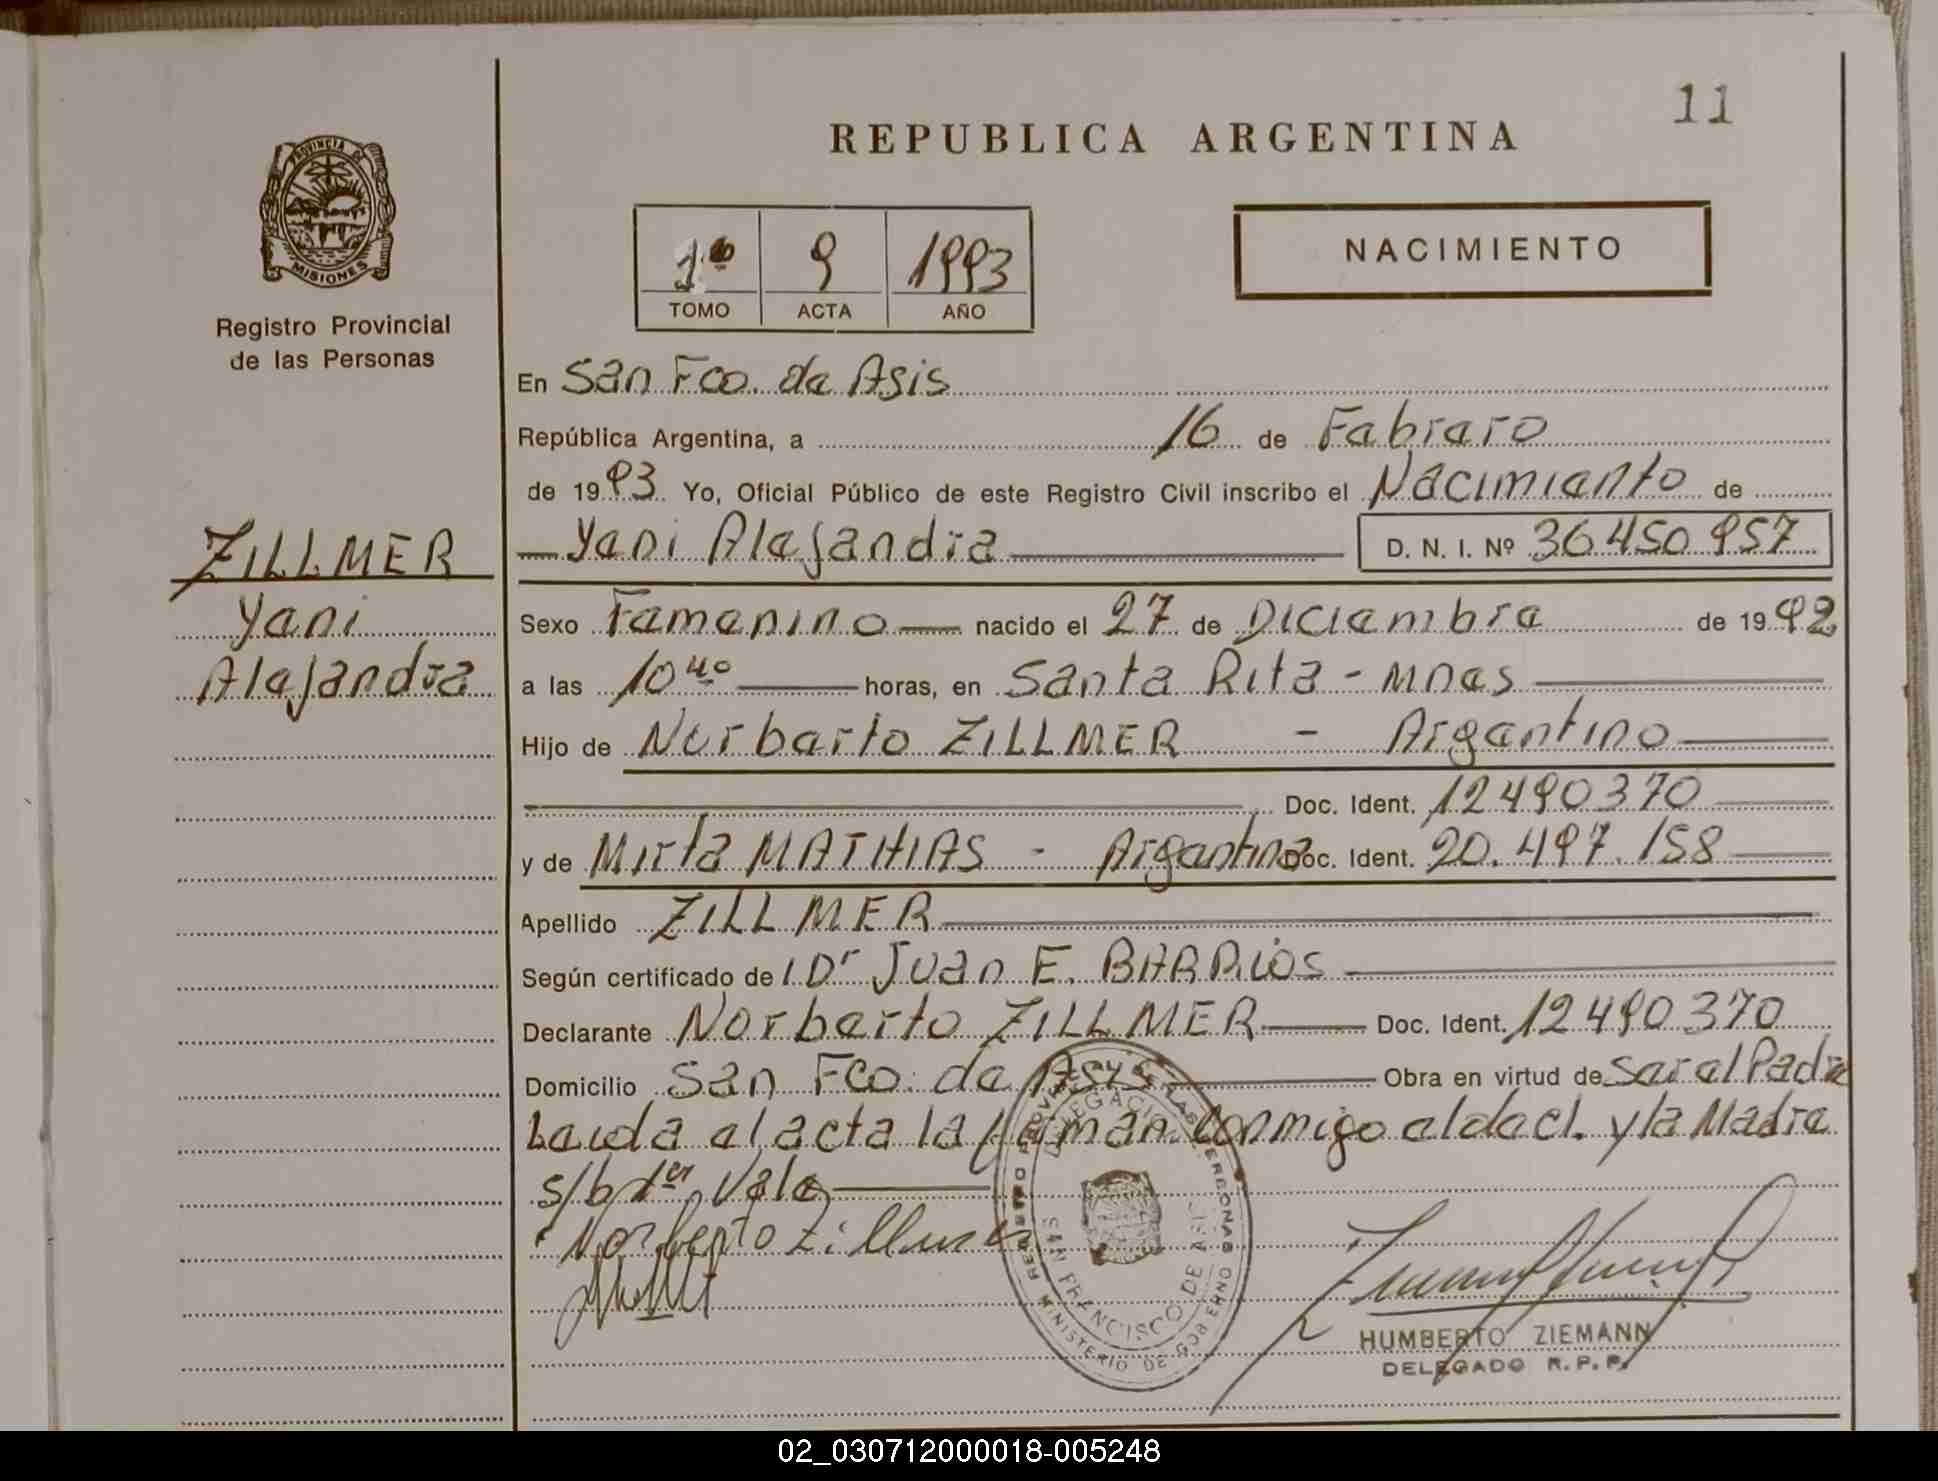 11
REPUBLICA ARGENTINA
PROVINCIA DE
MISIONES
Registro Provincial
de las Personas
1º 9 1993
TOMO ACTA AÑO
NACIMIENTO
En San Fco. de Asis
República Argentina, a 16 de Febrero
de 1993 Yo, Oficial Público de este Registro Civil inscribo el Nacimiento de
Yeni Alejandra D. N. I. Nº 36450957
ZILLMER
Yeni
Alejandra
Sexo Femenino nacido el 27 de Diciembre de 1992
a las 10 40 horas, en Santa Rita - Mnes
Hijo de Norberto ZILLMER - Argentino
Doc. Ident. 12490370
y de Mirta MATHIAS - Argentina Doc. Ident. 20.497.158
Apellido ZILLMER
Según certificado de Dr Juan E. BARRIOS
Declarante Norberto ZILLMER Doc. Ident. 12490370
Domicilio San Fco. de Asis Obra en virtud de ser el Padre
Leida el acta la firman conmigo el decl. y la Madre
s/b Vale
Norberto Zillmer
DELEGACION
SAN FRANCISCO DE ASIS
MINISTERIO DE GOBIERNO
HUMBERTO ZIEMANN
DELEGADO R.P.P.
02_030712000018-005248